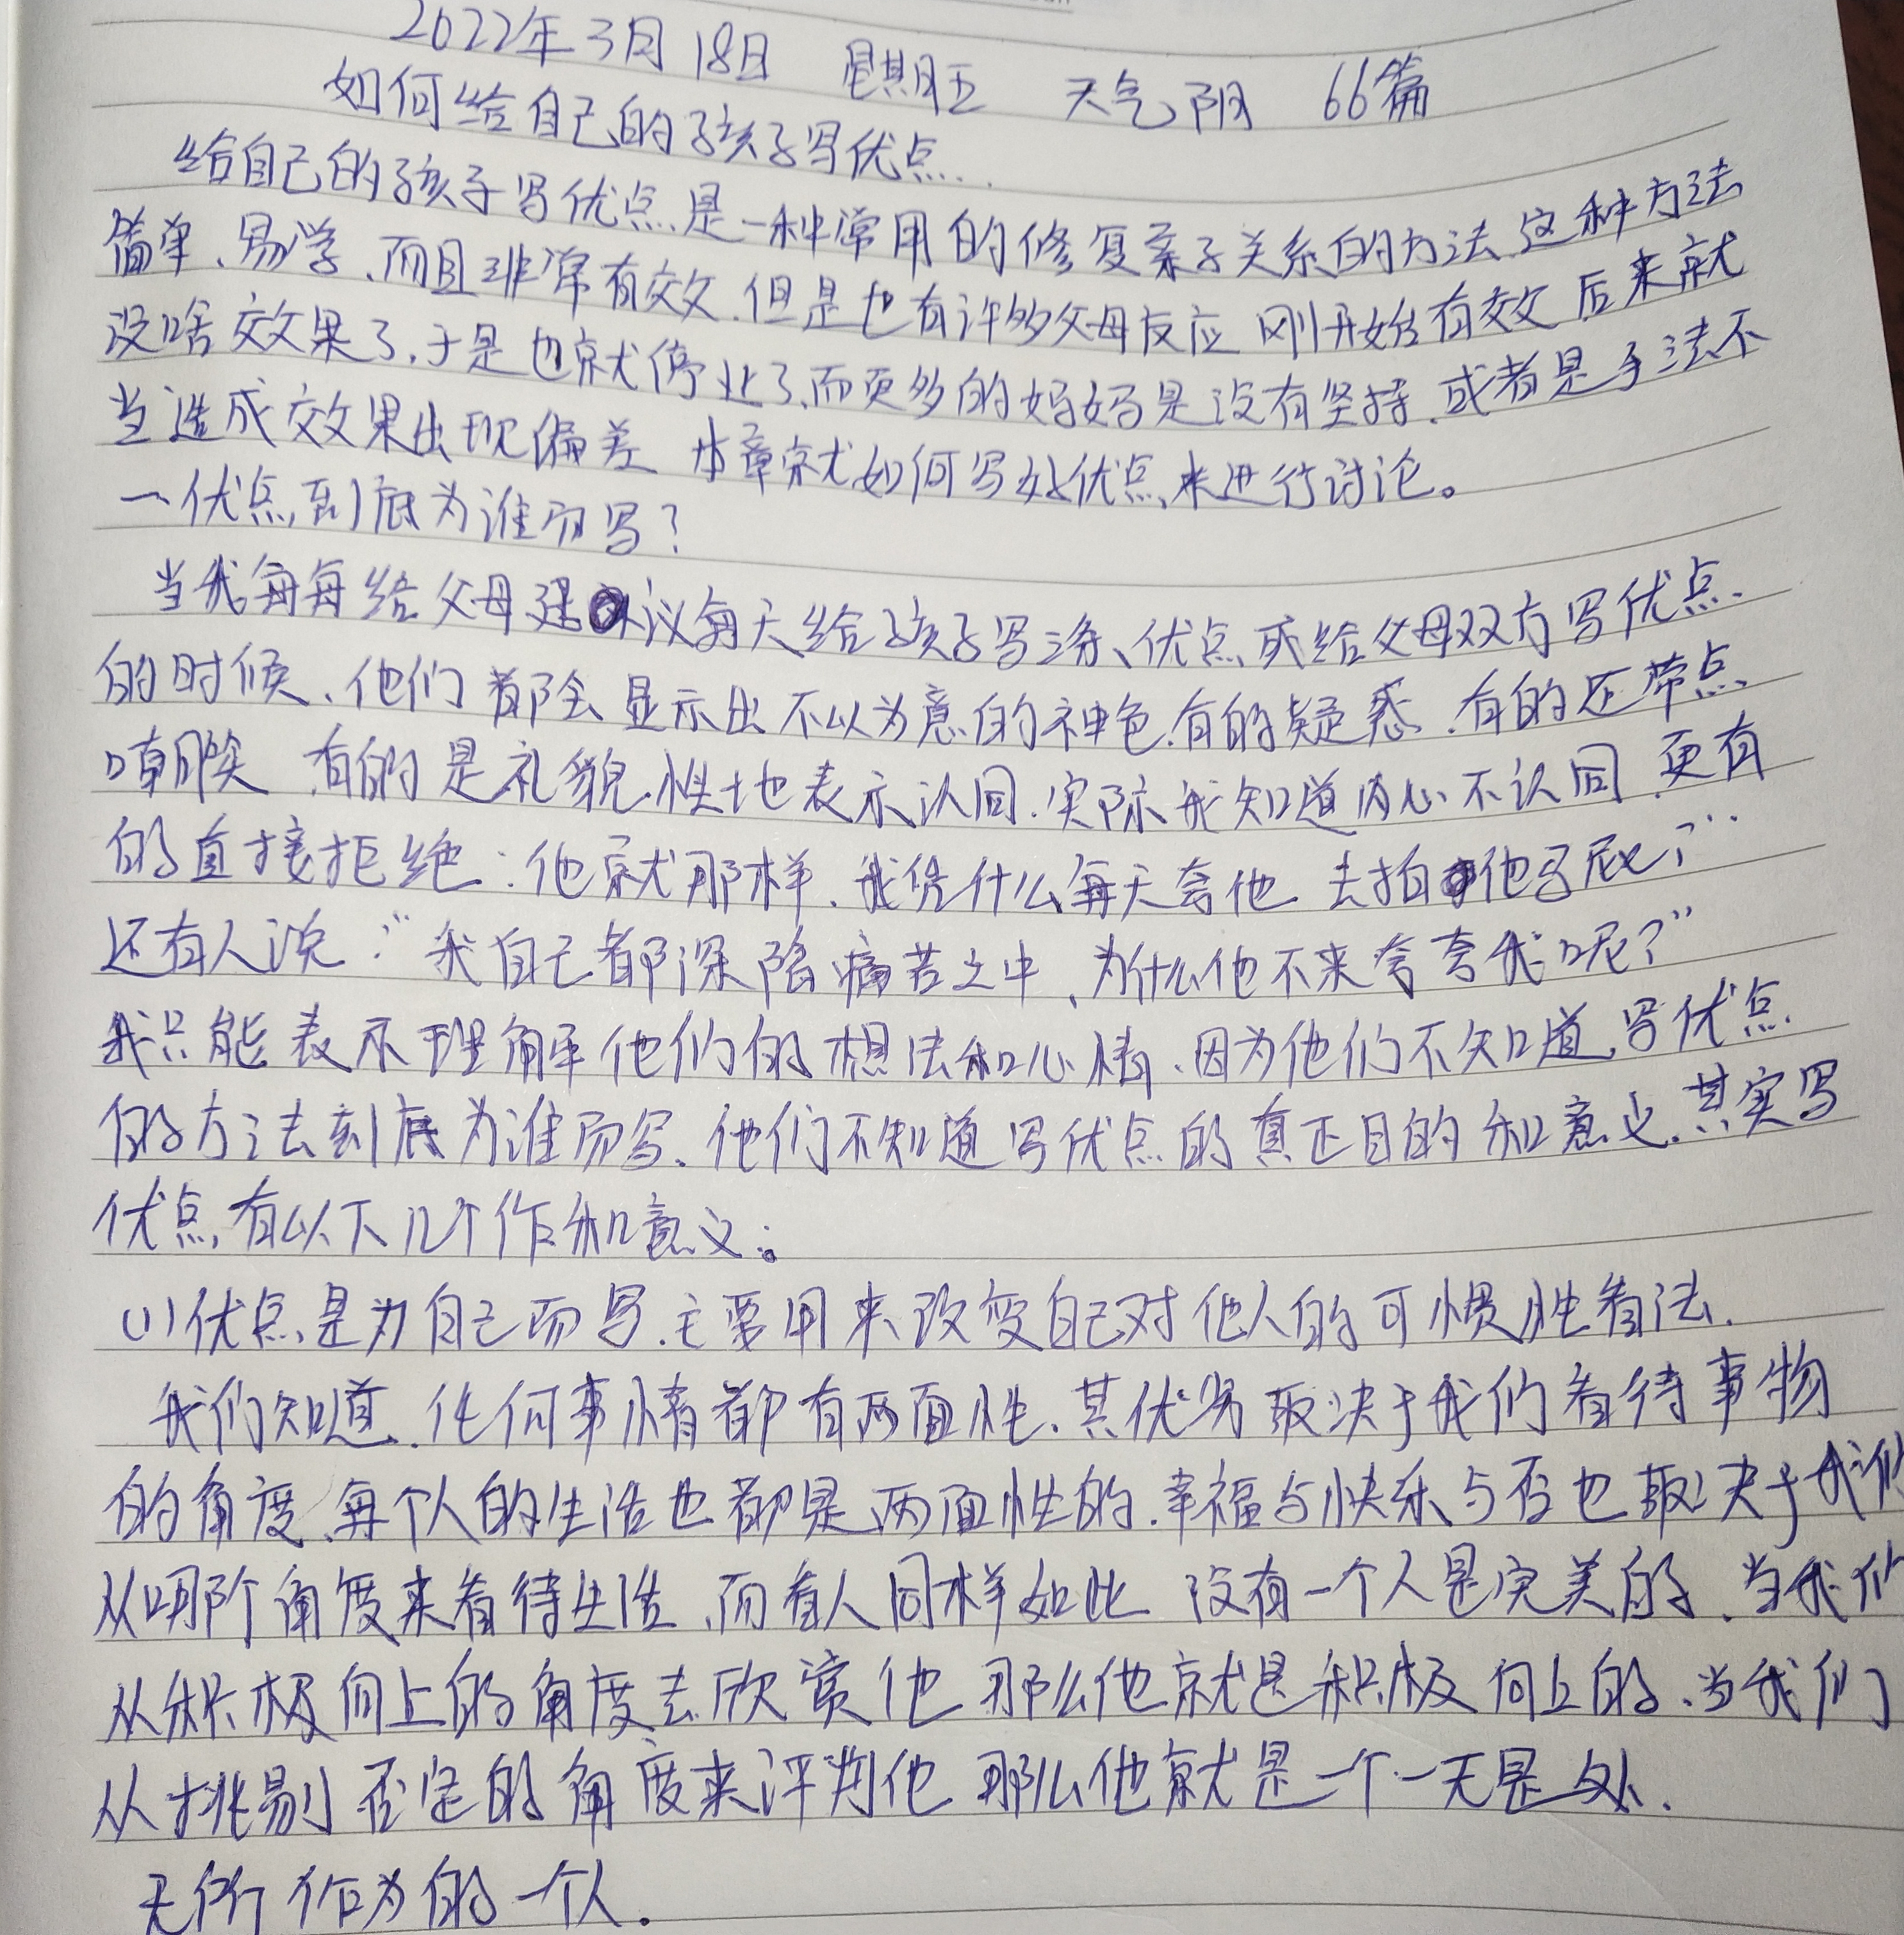 2022年3月18日 星期五 天气阴 66篇
如何给自己的孩子写优点.
给自己的孩子写优点是一种常用的修复亲子关系的方法.这种方法
简单、易学、而且非常有效.但是也有许多父母反应 刚开始有效 后来就
没啥效果了.于是也就停止了、而更多的妈妈是没有坚持.或者是手法不
当造成效果出现偏差 本章就如何写好优点来进行讨论。
一优点到底为谁而写?
当我每每给父母建议每天给孩子写三条、优点或给父母双方写优点
的时候、他们都会显示出不以为意的神色.有的疑惑.有的还带点
嘲笑 有的是礼貌性地表示认同.实际我知道内心不认同.更有
的直接拒绝:他就那样.我凭什么每天夸他 去拍他马屁?”
还有人说:“我自己都深陷痛苦之中、为什么他不来夸夸我呢?”
我只能表示理解他们的想法和心情.因为他们不知道.写优点
的方法到底为谁而写.他们不知道写优点的真正目的和意义.其实写
优点,有以下几个作和意义:。
(1)优点是为自己而写.主要用来改变自己对他人的可惯性看法.
我们知道.任何事情都有两面性.其优劣取决于我们看待事物
的角度.每个人的生活也都是两面性的.幸福与快乐与否也取决于我们
从哪个角度来看待生活.而看人同样如此 没有一个人是完美的.当我们
从积极向上的角度去欣赏他 那么他就是积极向上的.当我们
从挑剔否定的角度来评判他 那么他就是一个一无是处.
无所作为的一个人.